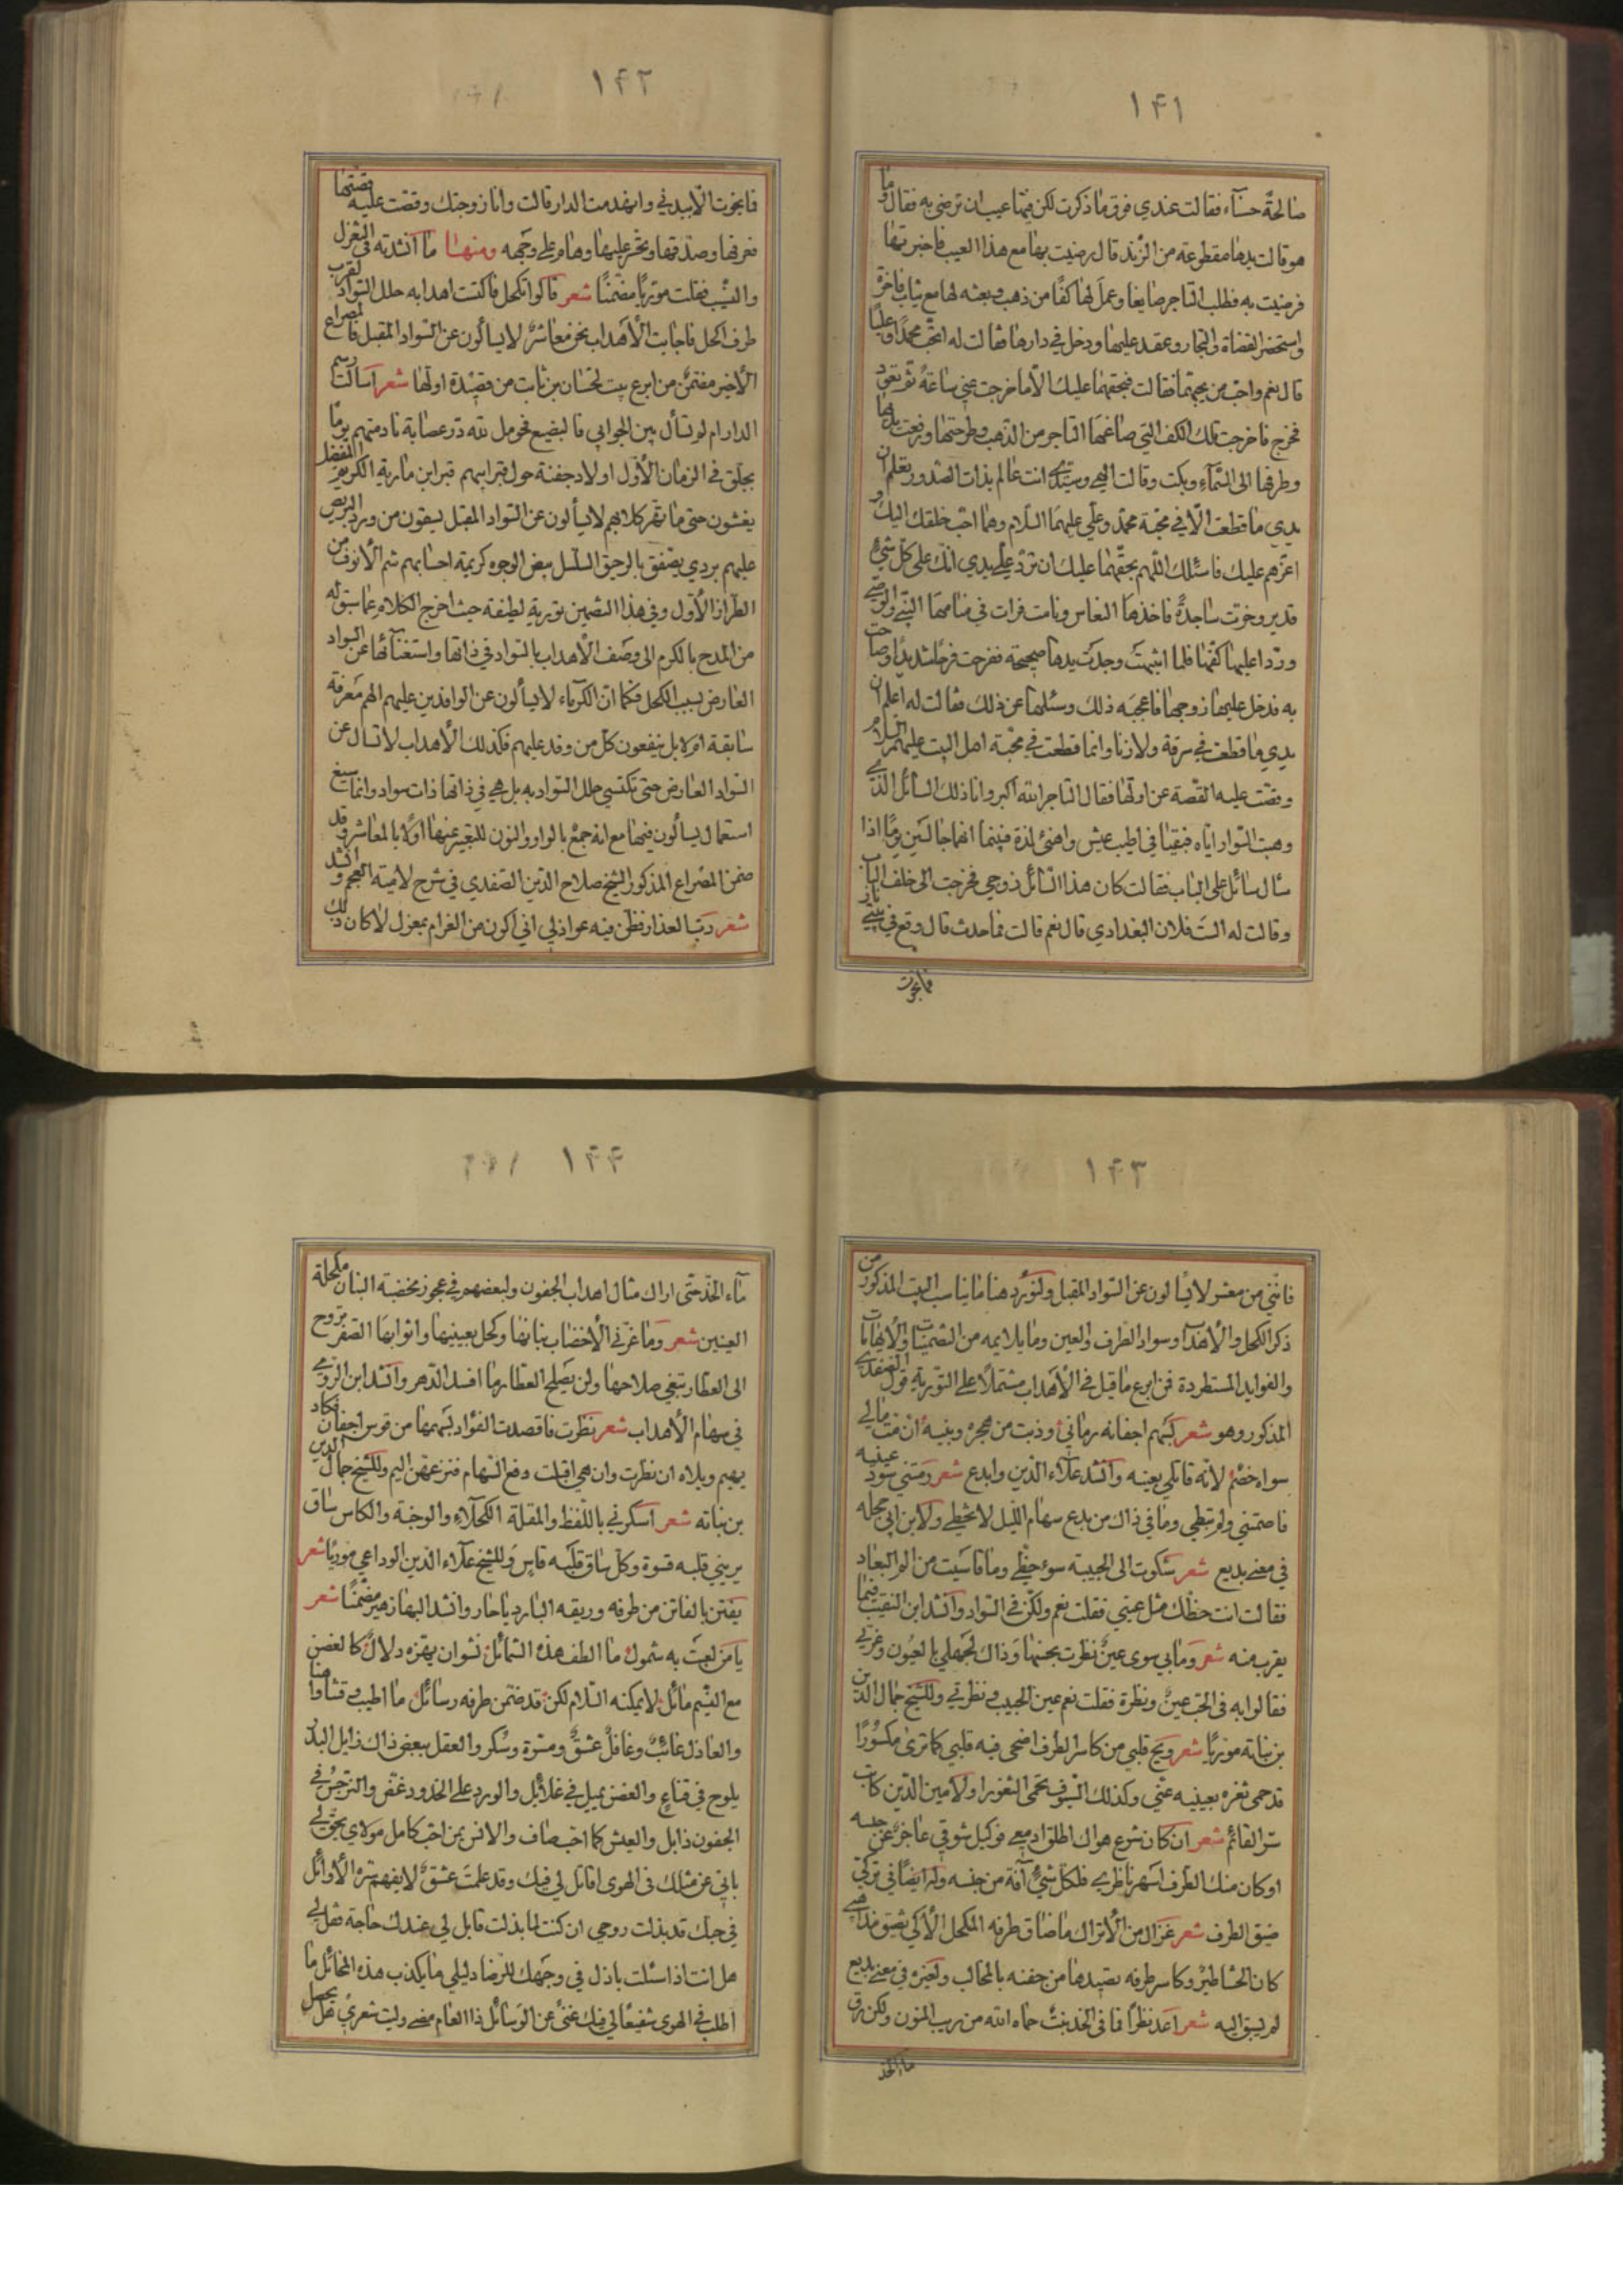 ١٤١
صالحة حسناء فقالت عندي فوق ما ذكرت لكن فيها عيب ان ترضى به فقال وما
هو قالت يدها مقطوعة من الزند قال رضيت بها مع هذا العيب فاخبرتها
فرضيت به فطلب التاجر صايغا وعمل لها كفا من ذهب وبعثه لها مع ثياب فاخرة
واستحضر القضاة والتجار وعقد عليها ودخل في دارها فقالت له اتحب محمدا وعليا
قال نعم واحب من يحبهما فقالت فبحقهما عليك الا ما خرجت عني ساعة ثم تعود
فخرج فاخرجت تلك الكف التي صاغها التاجر من الذهب وطرحتها ورفعت يدها
وطرفها الى السماء وبكت وقالت الهي وسيدي انت عالم بذات الصدور وتعلم ان
يدي ما قطعت الا في محبة محمد وعلي عليهما السلام وهما احب خلقك اليك و
اعزهم عليك فاسئلك اللهم بحقهما عليك ان ترد علي يدي انك على كل شيء
قدير وخرت ساجدة فاخذها النعاس ونامت فرات في منامها النبي والوصي
وردا عليها كفها فلما انتبهت وجدت يدها صحيحة ففرحت فرحا شديدا وصاحت
به فدخل عليها زوجها فاعجبه ذلك وسئلها عن ذلك فقالت له اعلم ان
يدي ما قطعت في سرقة ولا زنا وانما قطعت في محبة اهل البيت عليهم السلام
وقصت عليه القصة عن اولها فقال التاجر الله اكبر وانا ذلك السائل الذي
وهبت السوار اياه فبقيا في اطيب عيش واهنئ لذة فبينما انهما جالسين يوما اذا
سال سائل على الباب فقالت كان هذا السائل زوجي فخرجت الى خلف الباب
وقالت له الست فلان البغدادي قال نعم قالت فما حدث قال وقع في بيتي نار
فما نجوت
١٤٢
فما نجوت الا ببدني وانهدمت الدار قالت وانا زوجتك وقصت عليه قصتها
فعرفها وصدقها وتحسر عليها وهام على وجهه ومنها ما انشدته في التغزل
والتشبب فقلت موريا مضمنا شعر قالوا تكحل فاكتست اهدابه حلل السواد لقرب
طرف اكحل فاجابت الأهداب نحن معاشر لا يسألون عن السواد المقبل فالمصراع
الأخير مضمن من ابرع بيت لحسان بن ثابت من قصيدة اولها شعر اسالت رسم
الدار ام لم تسأل بين الجوابي فالبضيع فحومل لله در عصابة نادمتهم يوما
بجلق في الزمان الأول اولاد جفنة حول قبر ابيهم قبر ابن مارية الكريم المفضل
يغشون حتى ما تهر كلابهم لا يسألون عن السواد المقبل يسقون من ورد البريص
عليهم بردى يصفق بالرحيق السلسل بيض الوجوه كريمة احسابهم شم الأنوف من
الطراز الأول وفي هذا التضمين تورية لطيفة حيث اخرج الكلام عما سبق له
من المدح بالكرم الى وصف الأهداب بالسواد في ذاتها واستغنائها عن السواد
العارض بسبب الكحل فكما ان الكرماء لا يسألون عن الوافدين عليهم الهم معرفة
سابقة ام لا بل ينفعون كل من وفد عليهم فكذلك الأهداب لا تسال عن
السواد العارض حتى تكتسي حلل السواد به بل هي في ذاتها ذات سواد وانما سيغ
استعمال يسألون فيها مع انه جمع بالواو والنون للتعبير عنها اولا بالمعاشر وقد
ضمن المصراع المذكور الشيخ صلاح الدين الصفدي في شرح لامية العجم وانشد
شعر دب العذار فظن فيه عواذلي اني اكون من الغرام بمعزل لا كان ذلك
١٤٣
فانني من معشر لا يسألون عن السواد المقبل ولنورد هنا ما يناسب البيت المذكور من
ذكر الكحل والأهداب وسواد الطرف والعين وما يلايمه من التضمينات والأيهامات
والفوايد المستطردة فمن ابرع ما قيل في الأهداب مشتملا على التورية قول الصفدي
المذكور وهو شعر بسهم اجفانه رماني وذبت من هجره وبينه ان مت مالي
سواه خصم لأنه قاتلي بعينه وانشد علاء الدين وابدع شعر رمتني سود عينيه
فاصمتني ولم تبطي وما في ذاك من بدع سهام الليل لا تخطي ولأبن ابي حجله
في معنى بديع شعر شكوت الى الحبيبة سوء حظي وما قاسيت من الم البعاد
فقالت انت حظك مثل عيني فقلت نعم ولكن في السواد وانشد ابن النقيب فيما
يقرب منه شعر وما بي سوى عين نظرت بحسنها وذاك لجهلي بالعيون وغرتي
فقالوا به في الحب عين ونظرة فقلت نعم عين الحبيب ونظرتي وللشيخ جمال الدين
بن نباته موريا شعر ويح قلبي من كاسر الطرف اضحى فيه قلبي كما ترى مكسورا
قد حمى ثغره بعينيه عني وكذلك السيوف تحمى الثغورا ولأمين الدين كاتب
سر القائم شعر ان كان شرع هواك اطلق ادمعي فوكيل شوقي عاجز عن حبسه
او كان منك الطرف اسهر ناظري فلكل شيء آفة من جنسه وله ايضا في تركي
ضيق الطرف شعر غزال من الأتراك ما ضاق طرفه المكحل الا كي تضيق مذاهبي
كان الحشا طير وكاسر طرفه يصيدها من جفنه بالمخالب ولغيره في معنى بديع
لم يسبق اليه شعر اعد نظرا فما في الخد نبت حماه الله من ريب المنون ولكن رق
ماء الخد
١٤٤
ماء الخد حتى اراك مثال اهداب الجفون ولبعضهم في عجوز مخضبة البنان مكحلة
العينين شعر وما غرني الا خضاب بنانها وكحل بعينيها واثوابها الصفر تروح
الى العطار تبغي صلاحها ولن يصلح العطار ما افسد الدهر وانشد ابن الرومي
في سهام الأهداب شعر نظرت فاقصدت الفؤاد بسهمها من قوس اجفان فكاد
يهيم ويلاه ان نظرت وان هي اقبلت وقع السهام ونزعهن اليم وللشيخ جمال الدين
بن نباته شعر اسكرني باللفظ والمقلة الكحلاء والوجنة والكاس ساق
يريني قلبه قسوة وكل ساق قلبه قاس وللشيخ علاء الدين الوداعي موريا شعر
يفتن بالفاتن من طرفه وريقه البارد يا حار وانشد البها زهير مضمنا شعر
يا من لعبت به شمول ما الطف هذه الشمائل نشوان يهزه دلال كالغصن
مع النسيم مائل لا يمكنه السلام لكن قد ضمن طرفه رسائل ما اطيب وقتنا واهنا
والعاذل غائب وغافل عشق ومسرة وسكر والعقل ببعض ذاك زايل البدر
يلوح في قناع والغصن يميل في غلائل والورد على الخدود غض والنرجس في
الجفون ذابل والعيش كما احب صاف والانس بمن احب كامل مولاي يحق لي
باني عن مثلك في الهوى اقاتل لي فيك وقد علمت عشق لا يفهم سره الأوائل
في حبك قد بذلت روحي ان كنت لما بذلت قابل لي عندك حاجة فقل لي
هل انت اذا سئلت باذل في وجهك للرضا دليل ما يكذب هذه المخائل ما
اطلب في الهوى شفيعا لي فيك غنى عن الوسائل ذا العام مضى وليت شعري هل يحصل